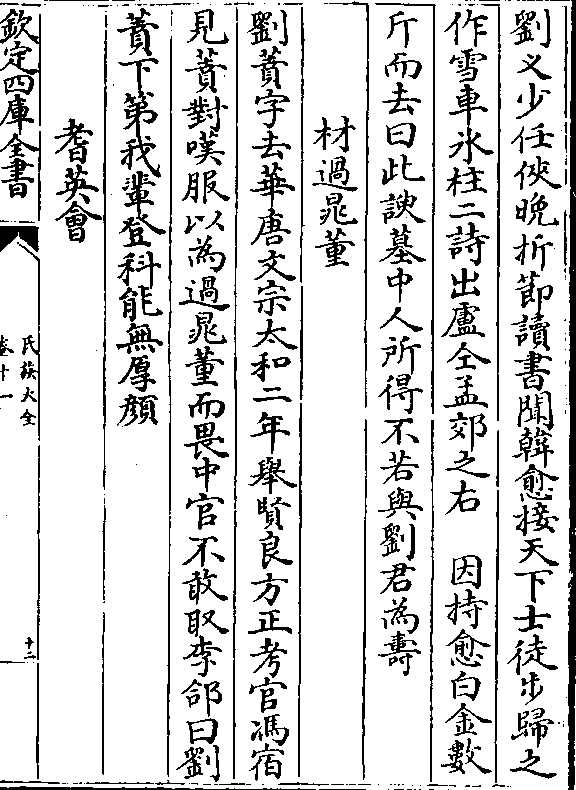 劉乂少任俠晩折節讀書聞韓愈接天下士徒步歸之
作雪車氷柱二詩出盧仝孟郊之右　因持愈白金數
斤而去曰此諛墓中人所得不若與劉君為壽
材過鼂董
劉蕡字去華唐文宗太和二年舉賢良方正考官馮宿
見蕡對嘆服以為過鼂董而畏中官不敢取李郃曰劉
蕡下第我輩登科能無厚顔
耆英會
欽定四庫全書
氏族大全
卷十一
十二